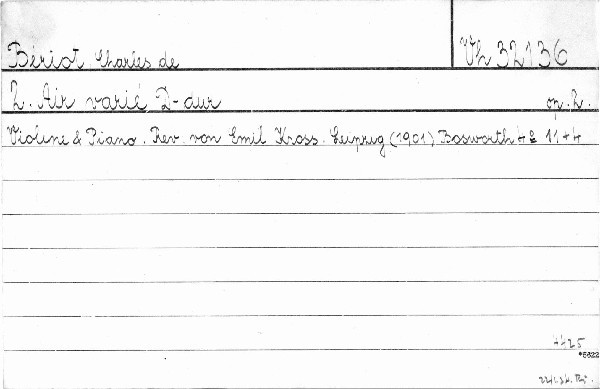 Bériot Charles de Vh 32136
2. Air varié D-dur op. 2.
Violine & Piano. Rev. von Emil Kross. Leipzig (1901) Bosworth 4° 11+4